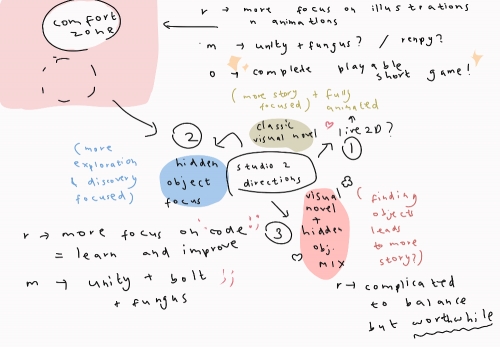 comfort
zone
r → more focus on illustrations
n animations
m → unity + fungus? / renpy?
o → complete playable
short game!
(more story + fully
focused) animated
classic
visual novel
live 2D?
1
2
(more
exploration
& discovery
focused)
hidden
object
focus
studio 2
directions
3
visual
novel
+
hidden
obj.
mix
(finding
objects
leads
to more
story?)
r → more focus on "code" ;;
= learn and improve
m → unity + bolt ;;
+ fungus
r → complicated
to balance
but worthwhile